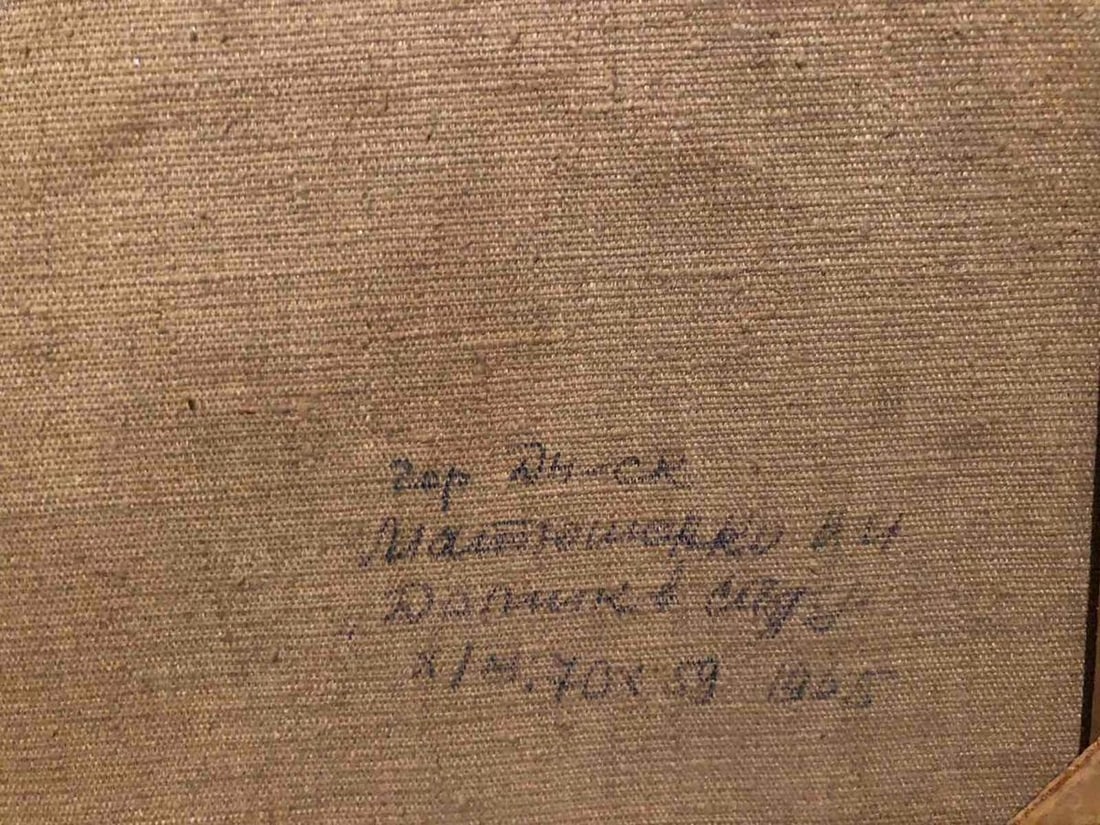 гор Дн-ск
Матюшенко В И
Домик в саду
х/м. 70х59 1965